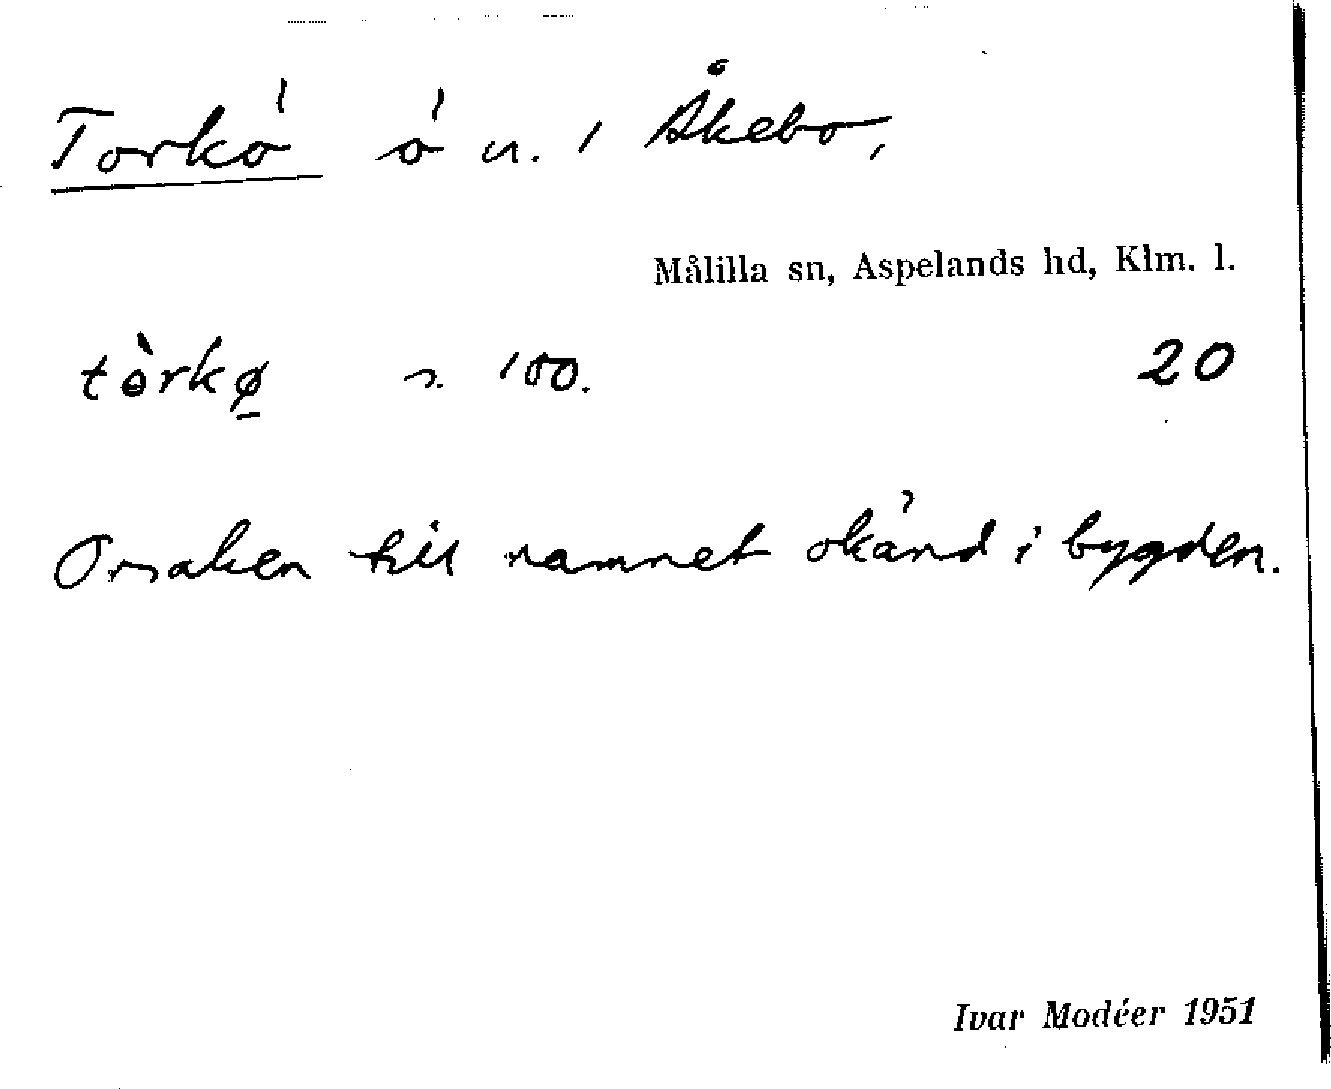 Torkö ö u. / Åkebo,
Målilla sn, Aspelands hd, Klm. l.
tòrkø̲ n. 100. 20
Orsaken till namnet okänd i bygden.
Ivar Modéer 1951